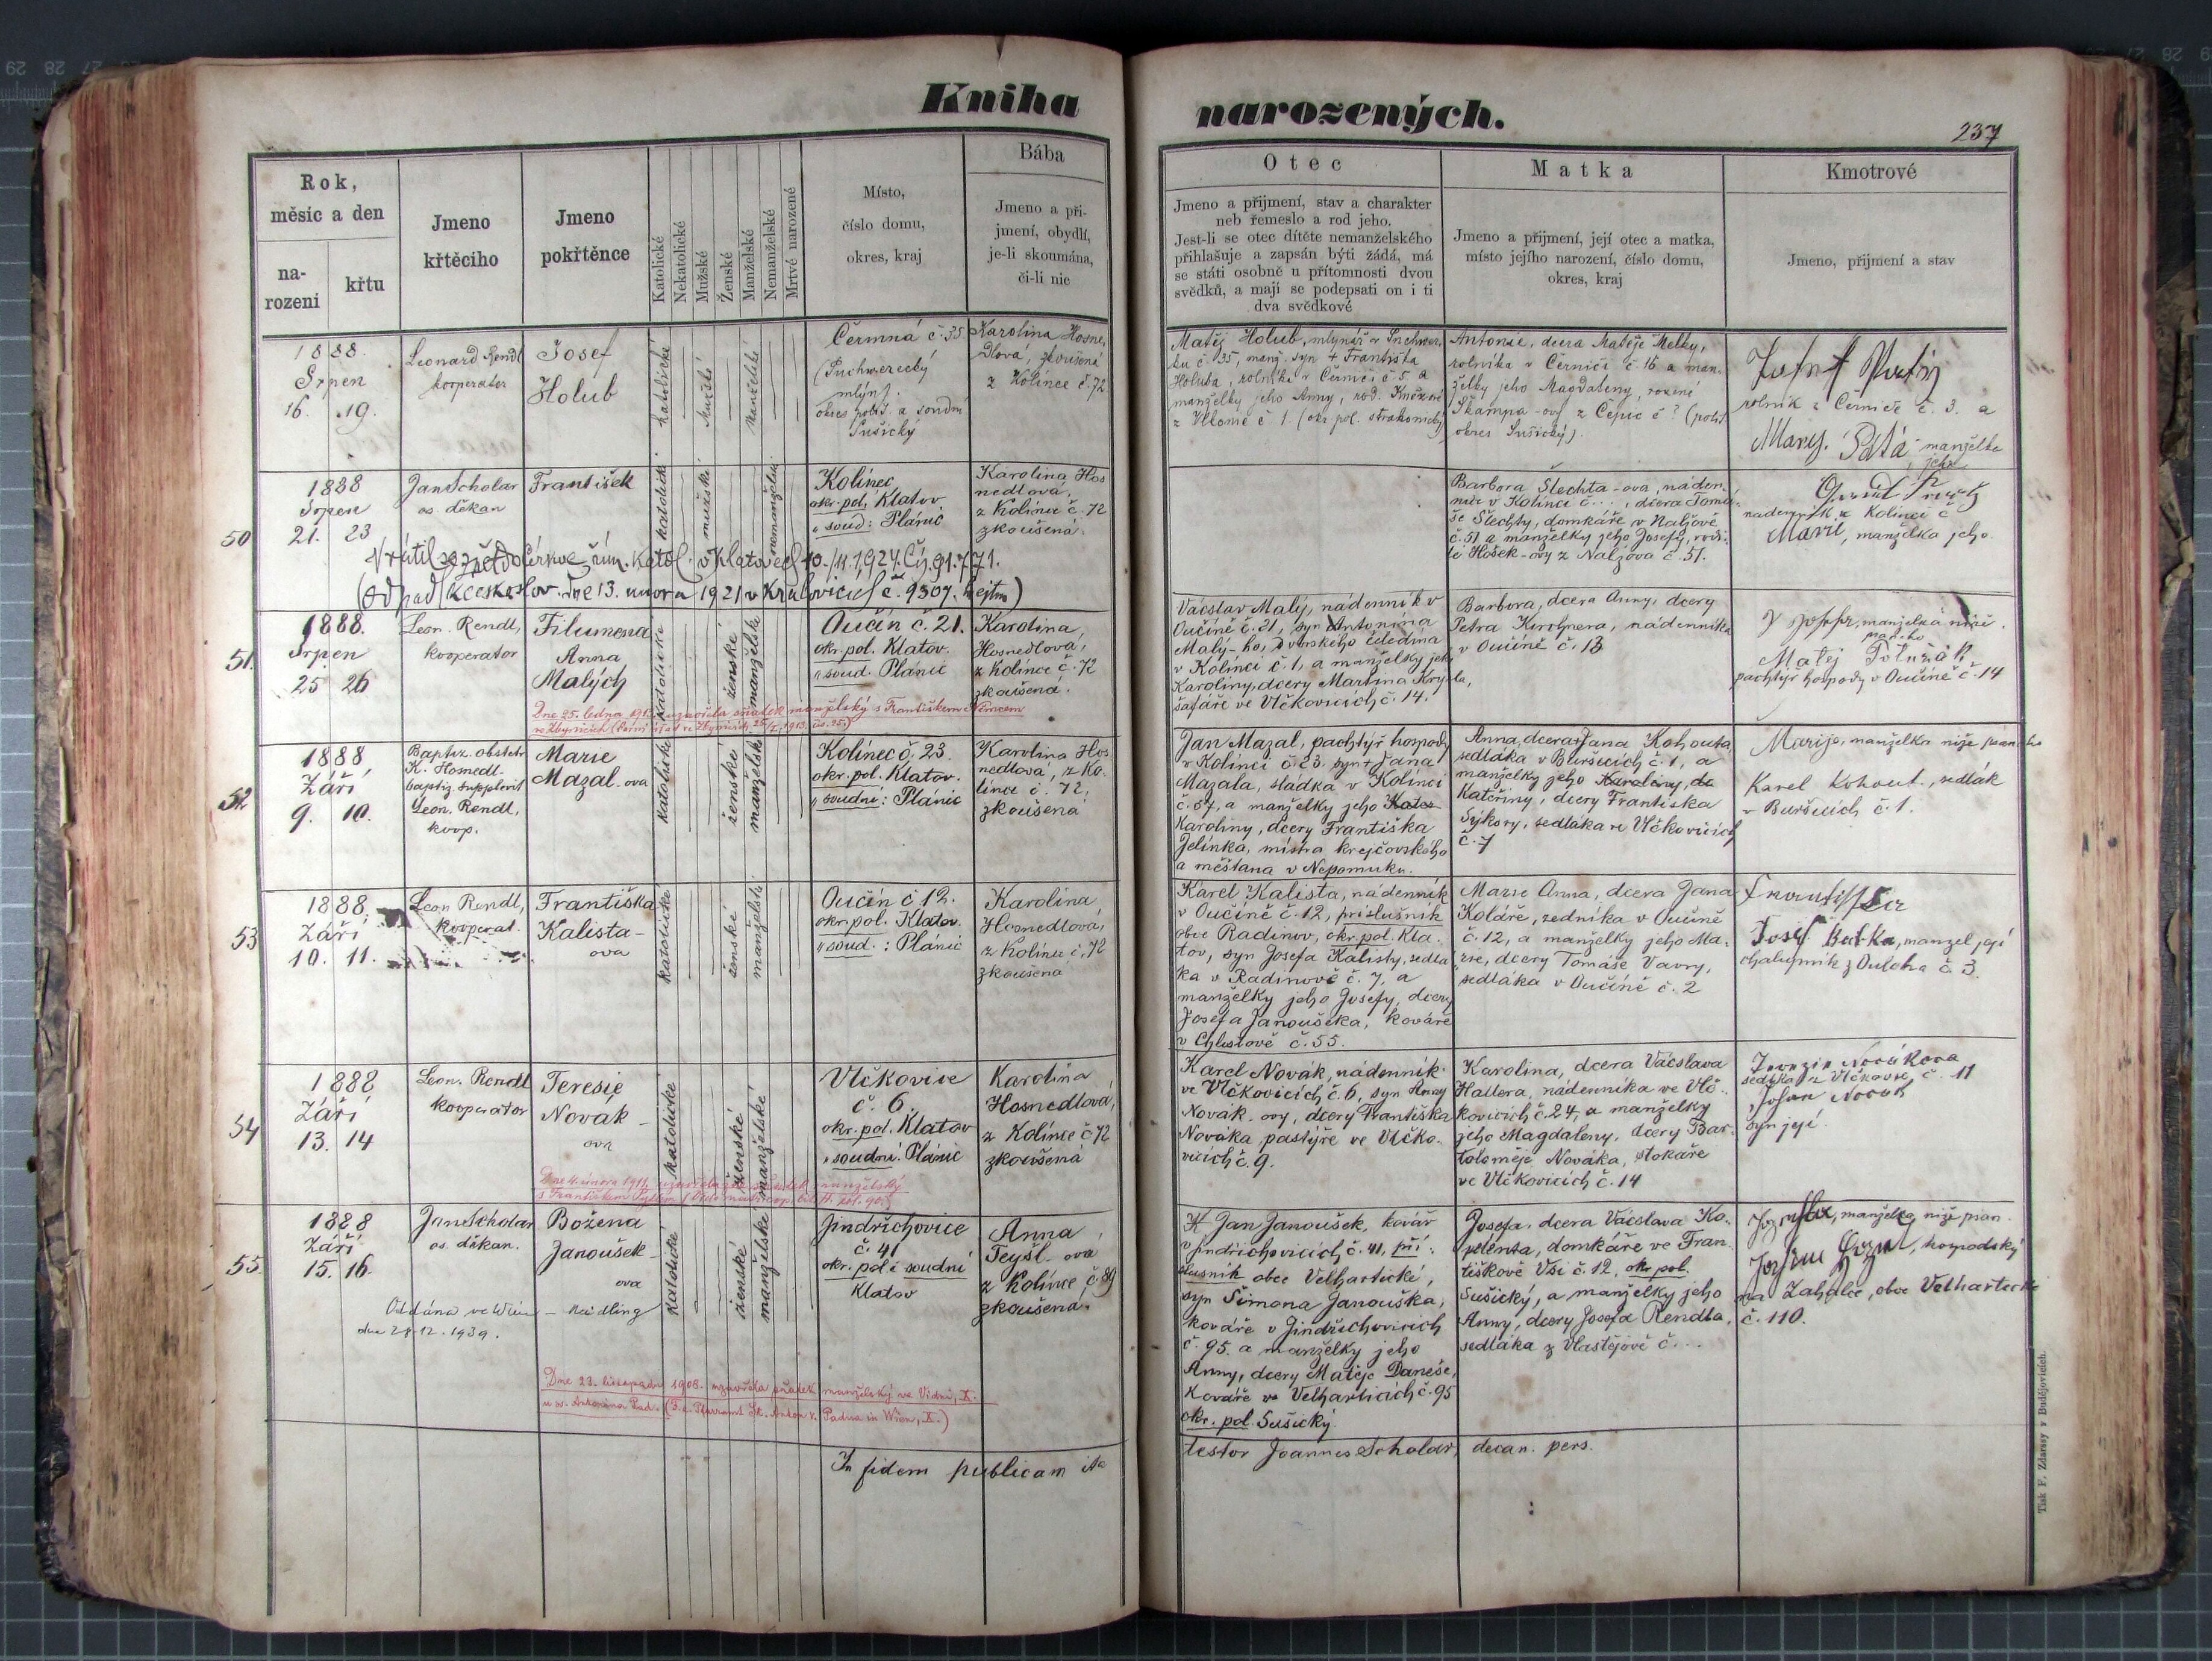 Kniha
narozených.
237
Rok,
měsíc a den
na-
rození
křtu
Jmeno
křtěcího
Jmeno
pokřtěnce
Katolické
Nekatolické
Mužské
Ženské
Manželské
Nemanželské
Mrtvé narozené
Místo,
číslo domu,
okres, kraj
Bába
Jmeno a pří-
jmení, obydlí,
je-li skoumána,
či-li nic
Otec
Jmeno a příjmení, stav a charakter
neb řemeslo a rod jeho.
Jest-li se otec dítěte nemanželského
přihlašuje a zapsán býti žádá, má
se státi osobně u přítomnosti dvou
svědků, a mají se podepsati on i ti
dva svědkové
Matka
Jmeno a příjmení, její otec a matka,
místo jejího narození, číslo domu,
okres, kraj
Kmotrové
Jmeno, příjmení a stav
1888.
Srpen
16. 19.
Leonard Rendl
kooperator
Josef
Holub
katolické
mužské
manželské
Čermná č. 35
(Suchwerecký
mlýn).
okres polit. a soudní
Sušický
Karolina Hosne-
dlova, zkoušená
z Kolince č. 72
Matěj Holub, mlynář v
č. 35, manž. syn + Františka
Holuba, rolníka v Černíči č. 5 a
manželky jeho Anny, rod.
z č 1. (okr. pol. strakonický)
Antonie, dcera Matěje Melky,
rolníka v Černíči č. 16 a man-
želky jeho Magdaleny, rozené
Škampa-ovy z Čepic č ? (polit.
okres Sušický).
rolník z Černíče č. 3. a
Marie Patá manželka
jeho
50
1888
Srpen
21. 23
Jan Scholar
os. děkan
František
katolické
mužské
nemanželské
Kolinec
okr. pol. Klatov.
" soud: Plánic
Karolina Hos
nedlova,
z Kolince č. 72
zkoušená.
Barbora Šlechta-ova, náden-
nice v Kolinci č. , dcera Tomá-
še Šlechty, domkáře v Nalžově
č. 51 a manželky jeho Josefy, roze-
né Hošek-ovy z Nalžova č. 51.
nádenník z Kolinci č
Marie, manželka jeho.
Vrátil se zpět do církve řím. katol. v Klatovech 10./11. 1924. Čj. 91.771.
(Odpadl k českoslov. dne 13. února 1921 v Kralovicích č. 9307. hejtm)
51.
1888.
Srpen
25 26
Leon. Rendl,
kooperator
Filumena
Anna
Malých
katolické
ženské
manželské
Oučín č. 21.
okr. pol. Klatov.
" soud. Plánic
Karolina,
Hosnedlova,
z Kolince č. 72
zkoušená.
Václav Malý, nádenník v
Oučíně č. 21, syn Antonína
Malý-ho, dvorského čeledína
v Kolinci č. 1, a manželky jeho
Karoliny, dcery Martina Krysla,
šafáře ve Vlčkovicích č. 14.
Barbora, dcera Anny, dcery
Petra Kirchnera, nádenníka
v Oučíně č. 13
manželka níže
psan-ho
Matěj Polužák
pachtýř hospody v Oučíně č. 14
Dne 25. ledna 1913 uzavřela sňatek manželský s Františkem Němcem
52.
1888
Září
9. 10.
Baptiz. obstetr
K. Hosnedl-
baptiz. supplevit
Leon. Rendl,
koop.
Marie
Mazal-ova
katolické
ženské
manželské
Kolinec č. 23.
okr. pol. Klatov.
" soudní: Plánic
Karolina Hos-
nedlova, z Ko-
lince č. 72,
zkoušená
Jan Mazal, pachtýř hospody
v Kolinci č. 23. syn + Jana
Mazala, sládka v Kolinci
č. 57, a manželky jeho
Karoliny, dcery Františka
Jelínka, místra krejčovského
a měšťana v Nepomuku.
Anna, dcera Jana Kohouta
sedláka v Buršicích č. 1, a
manželky jeho Karoliny, dc
Kateřiny, dcery Františka
Sýkory, sedláka ve Vlčkovicích
č. 7
Marije, manželka níže psan-ho
Karel Kohout, sedlák
v Buršicích č. 1.
53
1888.
Září
10. 11.
Leon Rendl,
kooperat.
Františka
Kalista-
ova
katolické
ženské
manželské
Oučín č 12.
okr. pol. Klatov.
" soud.: Plánic
Karolina
Hosnedlová,
z Kolince č. 72
zkoušená
Karel Kalista, nádenník
v Oučíně č. 12, příslušník
obce Radinov, okr. pol. Kla-
tov, syn Josefa Kalisty, sedlá-
ka v Radinově č. 7, a
manželky jeho Josefy, dcery
Josefa Janouška, kováře
v Chlistově č. 55.
Marie Anna, dcera Jana
Koláře, zedníka v Oučíně
č. 12, a manželky jeho Ma-
rie, dcery Tomáše Vavry,
sedláka v Oučíně č. 2
Františka
Josef Batka, manžel její
chalupník z č. 3.
54
1888
Září
13. 14
Leon. Rendl
kooperator
Teresie
Novák-
ova
katolické
ženské
manželské
Vlčkovice
č. 6.
okr. pol. Klatov
" soudní: Plánic
Karolina
Hosnedlová,
z Kolince č 72
zkoušená
Karel Novák, nádenník
ve Vlčkovicích č. 6, syn Anny
Novák-ovy, dcery Františka
Nováka, pastýře ve Vlčko-
vicích č. 9.
Karolina, dcera Václava
Hallera, nádenníka ve Vlč-
kovicích č. 24, a manželky
jeho Magdaleny, dcery Bar-
toloměje Nováka, stokaře
ve Vlčkovicích č. 14
Nováková
sedlka z Vlčkovic, č. 11
Johan Novák
syn její.
Dne 4. února 1911, manželský
55.
1888
Září
15. 16.
Jan Scholar
os. děkan.
Božena
Janoušek-
ova
katolické
ženské
manželské
Jindřichovice
č. 41
okr. pol. i soudní
Klatov
Anna
Teyšl-ová
z Kolince, č. 89
zkoušená.
Jan Janoušek, kovář
v Jindřichovicích č. 41, pří-
slušník obce Velhartické,
syn Šimona Janouška,
kováře v Jindřichovicích
č. 95. a manželky jeho
Anny, dcery Matěje Daneše,
kováře ve Velharticích č. 95
okr. pol. Sušický.
Josefa, dcera Václava Ko-
pelenta, domkáře ve Fran-
tiškově Vsi č. 12, okr. pol.
Sušický, a manželky jeho
Anny, dcery Josefa Rendla,
sedláka z Vlastějově č. ...
manželka níže psan.
hospodský
na Zahálce, obce Velhartické
č. 110.
Oddána ve Wien - Meidling
dne 28. 12. 1939.
Dne 23. listopadu 1908. uzavřela sňatek manželský ve Vídni, X.
u sv. Antonína Pad. (F. e. Pfarramt St. Anton v. Padua in Wien, X.)
In fidem publicam ita
testor Joannes Scholar, decan. pers.
Tisk F. Zdarssy v Budějovicích.